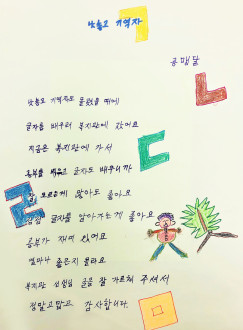 낫놓고 기역자
공맹달
낫놓고 기역자도 몰랐을 때에
글자를 배우러 복지관에 갔어요
지금은 복지관에 가서
공부를 하고 글자도 배우니까
모르는게 많아도 좋아요
점점 글자를 알아가는게 좋아요
공부가 재미 있어요
얼마나 좋은지 몰라요
복지관 선생님 글을 잘 가르쳐 주셔서
정말고맙고 감사합니다.